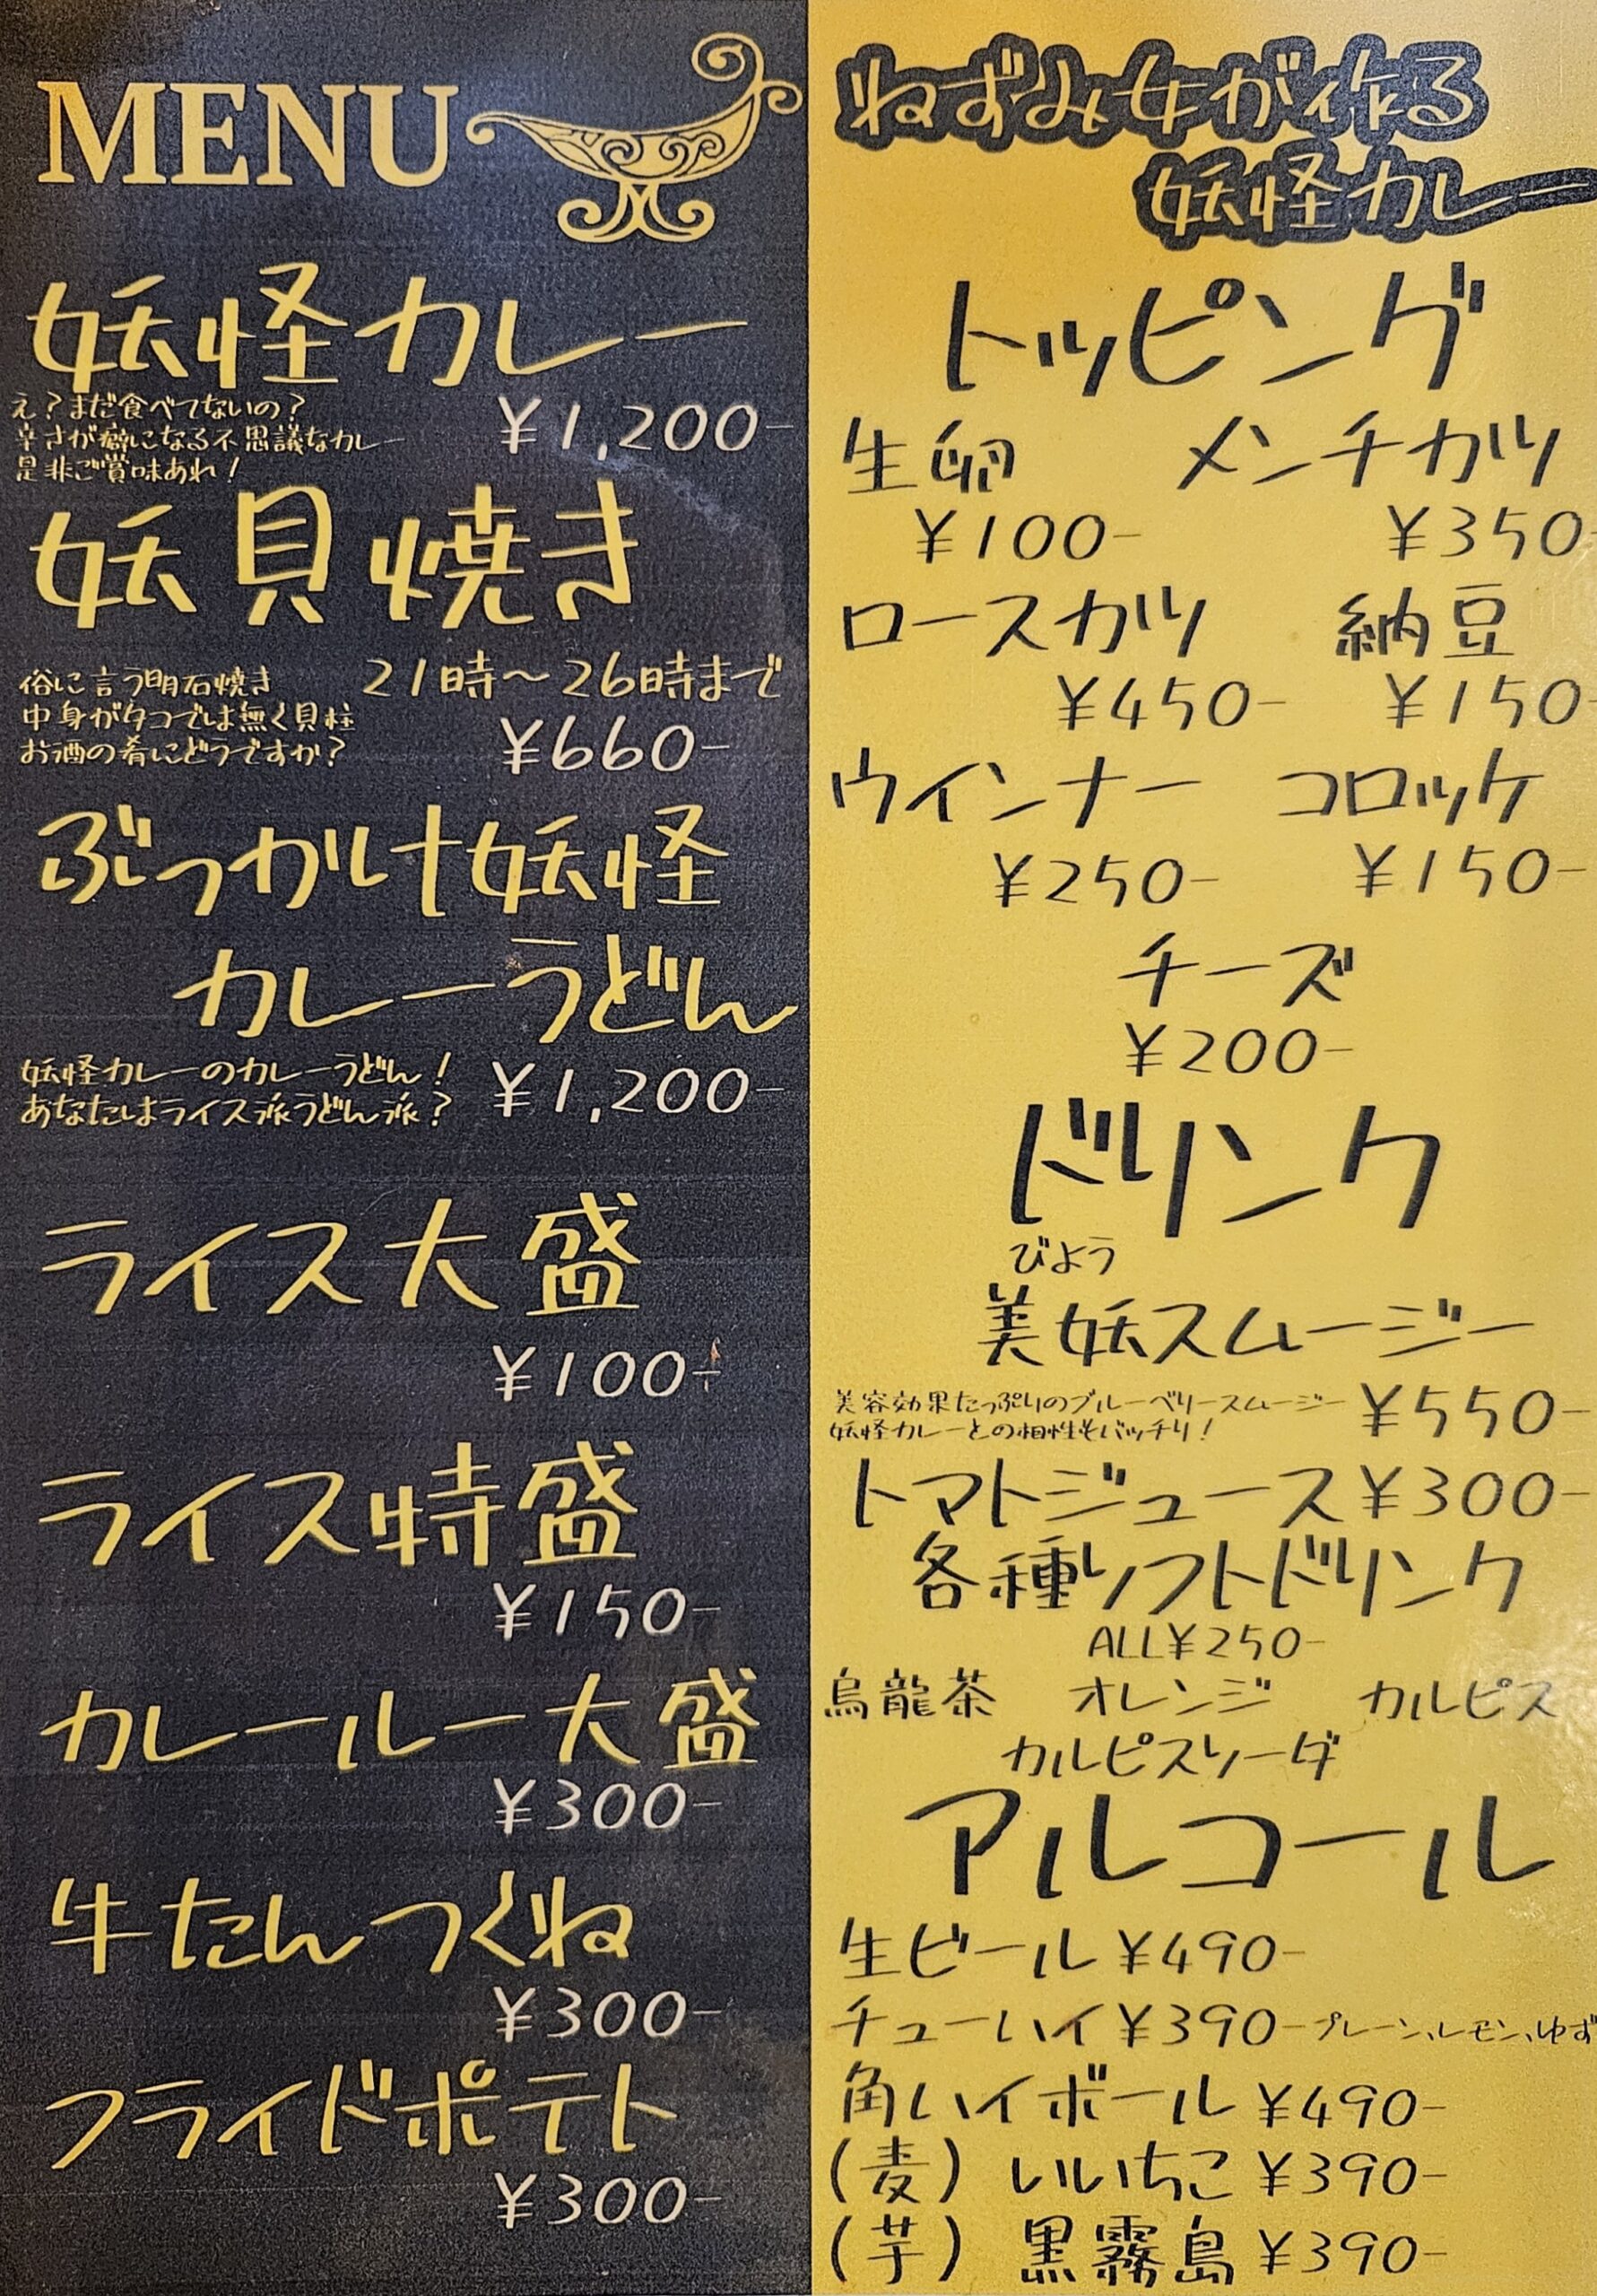 MENU
妖怪カレー
え？まだ食べてないの？
辛さが癖になる不思議なカレー
是非ご賞味あれ！
¥1,200-
妖貝焼き
俗に言う明石焼き
中身がタコでは無く貝柱
お酒の肴にどうですか？
21時～26時まで
¥660-
ぶっかけ妖怪
カレーうどん
妖怪カレーのカレーうどん！
あなたはライス派うどん派？
¥1,200-
ライス大盛
¥100-
ライス特盛
¥150-
カレールー大盛
¥300-
牛たんつくね
¥300-
フライドポテト
¥300-
ねずみ女が作る
妖怪カレー
トッピング
生卵 メンチカツ
¥100- ¥350-
ロースカツ 納豆
¥450- ¥150-
ウインナー コロッケ
¥250- ¥150-
チーズ
¥200-
ドリンク
びよう
美妖スムージー
美容効果たっぷりのブルーベリースムージー
妖怪カレーとの相性もバッチリ！
¥550-
トマトジュース ¥300-
各種ソフトドリンク
ALL¥250-
烏龍茶 オレンジ カルピス
カルピスソーダ
アルコール
生ビール ¥490-
チューハイ ¥390- プレーン、レモン、ゆず
角ハイボール ¥490-
(麦) いいちこ ¥390-
(芋) 黒霧島 ¥390-